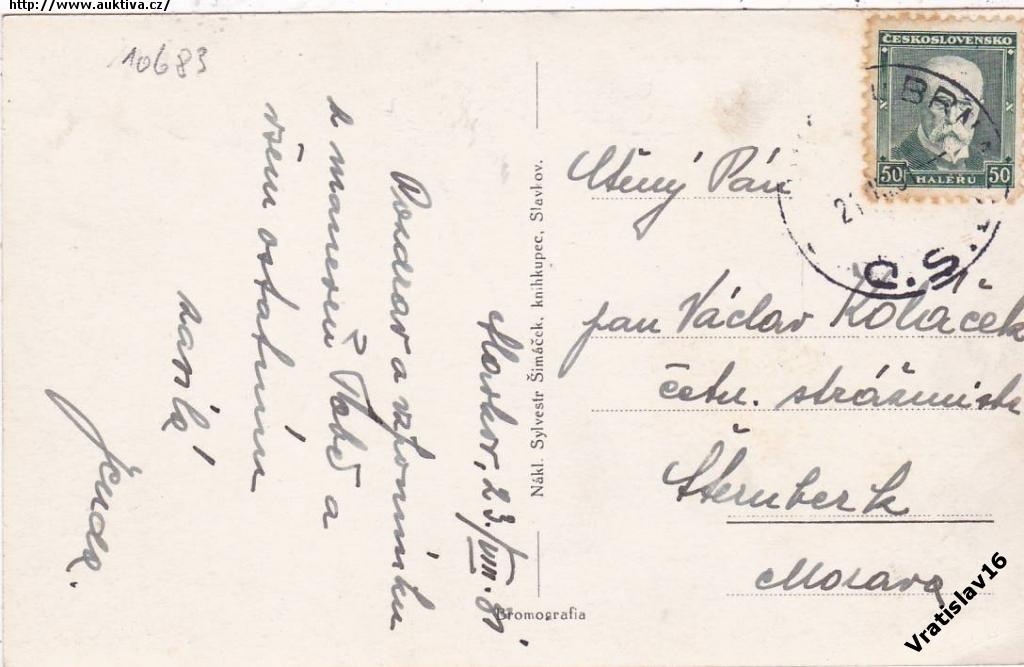 http://www.auktiva.cz/
10683
ČESKOSLOVENSKO
50 HALÉŘŮ 50
U BRNA
21
Č.S.
Slavkov, 23./VIII. 31
Pozdrav a vzpomínku
a
všem ostatním
zasílá
Jenda.
Nákl. Sylvestr Šimáček, knihkupec, Slavkov.
Bromografia
Ctěný Pán
pan Václav Koláček
četn. strážmistr
Šternberk
Morava
Vratislav16